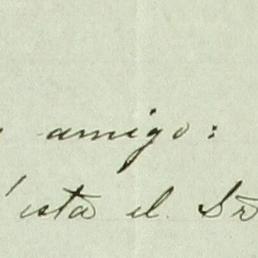 amigo:
esta el Sr